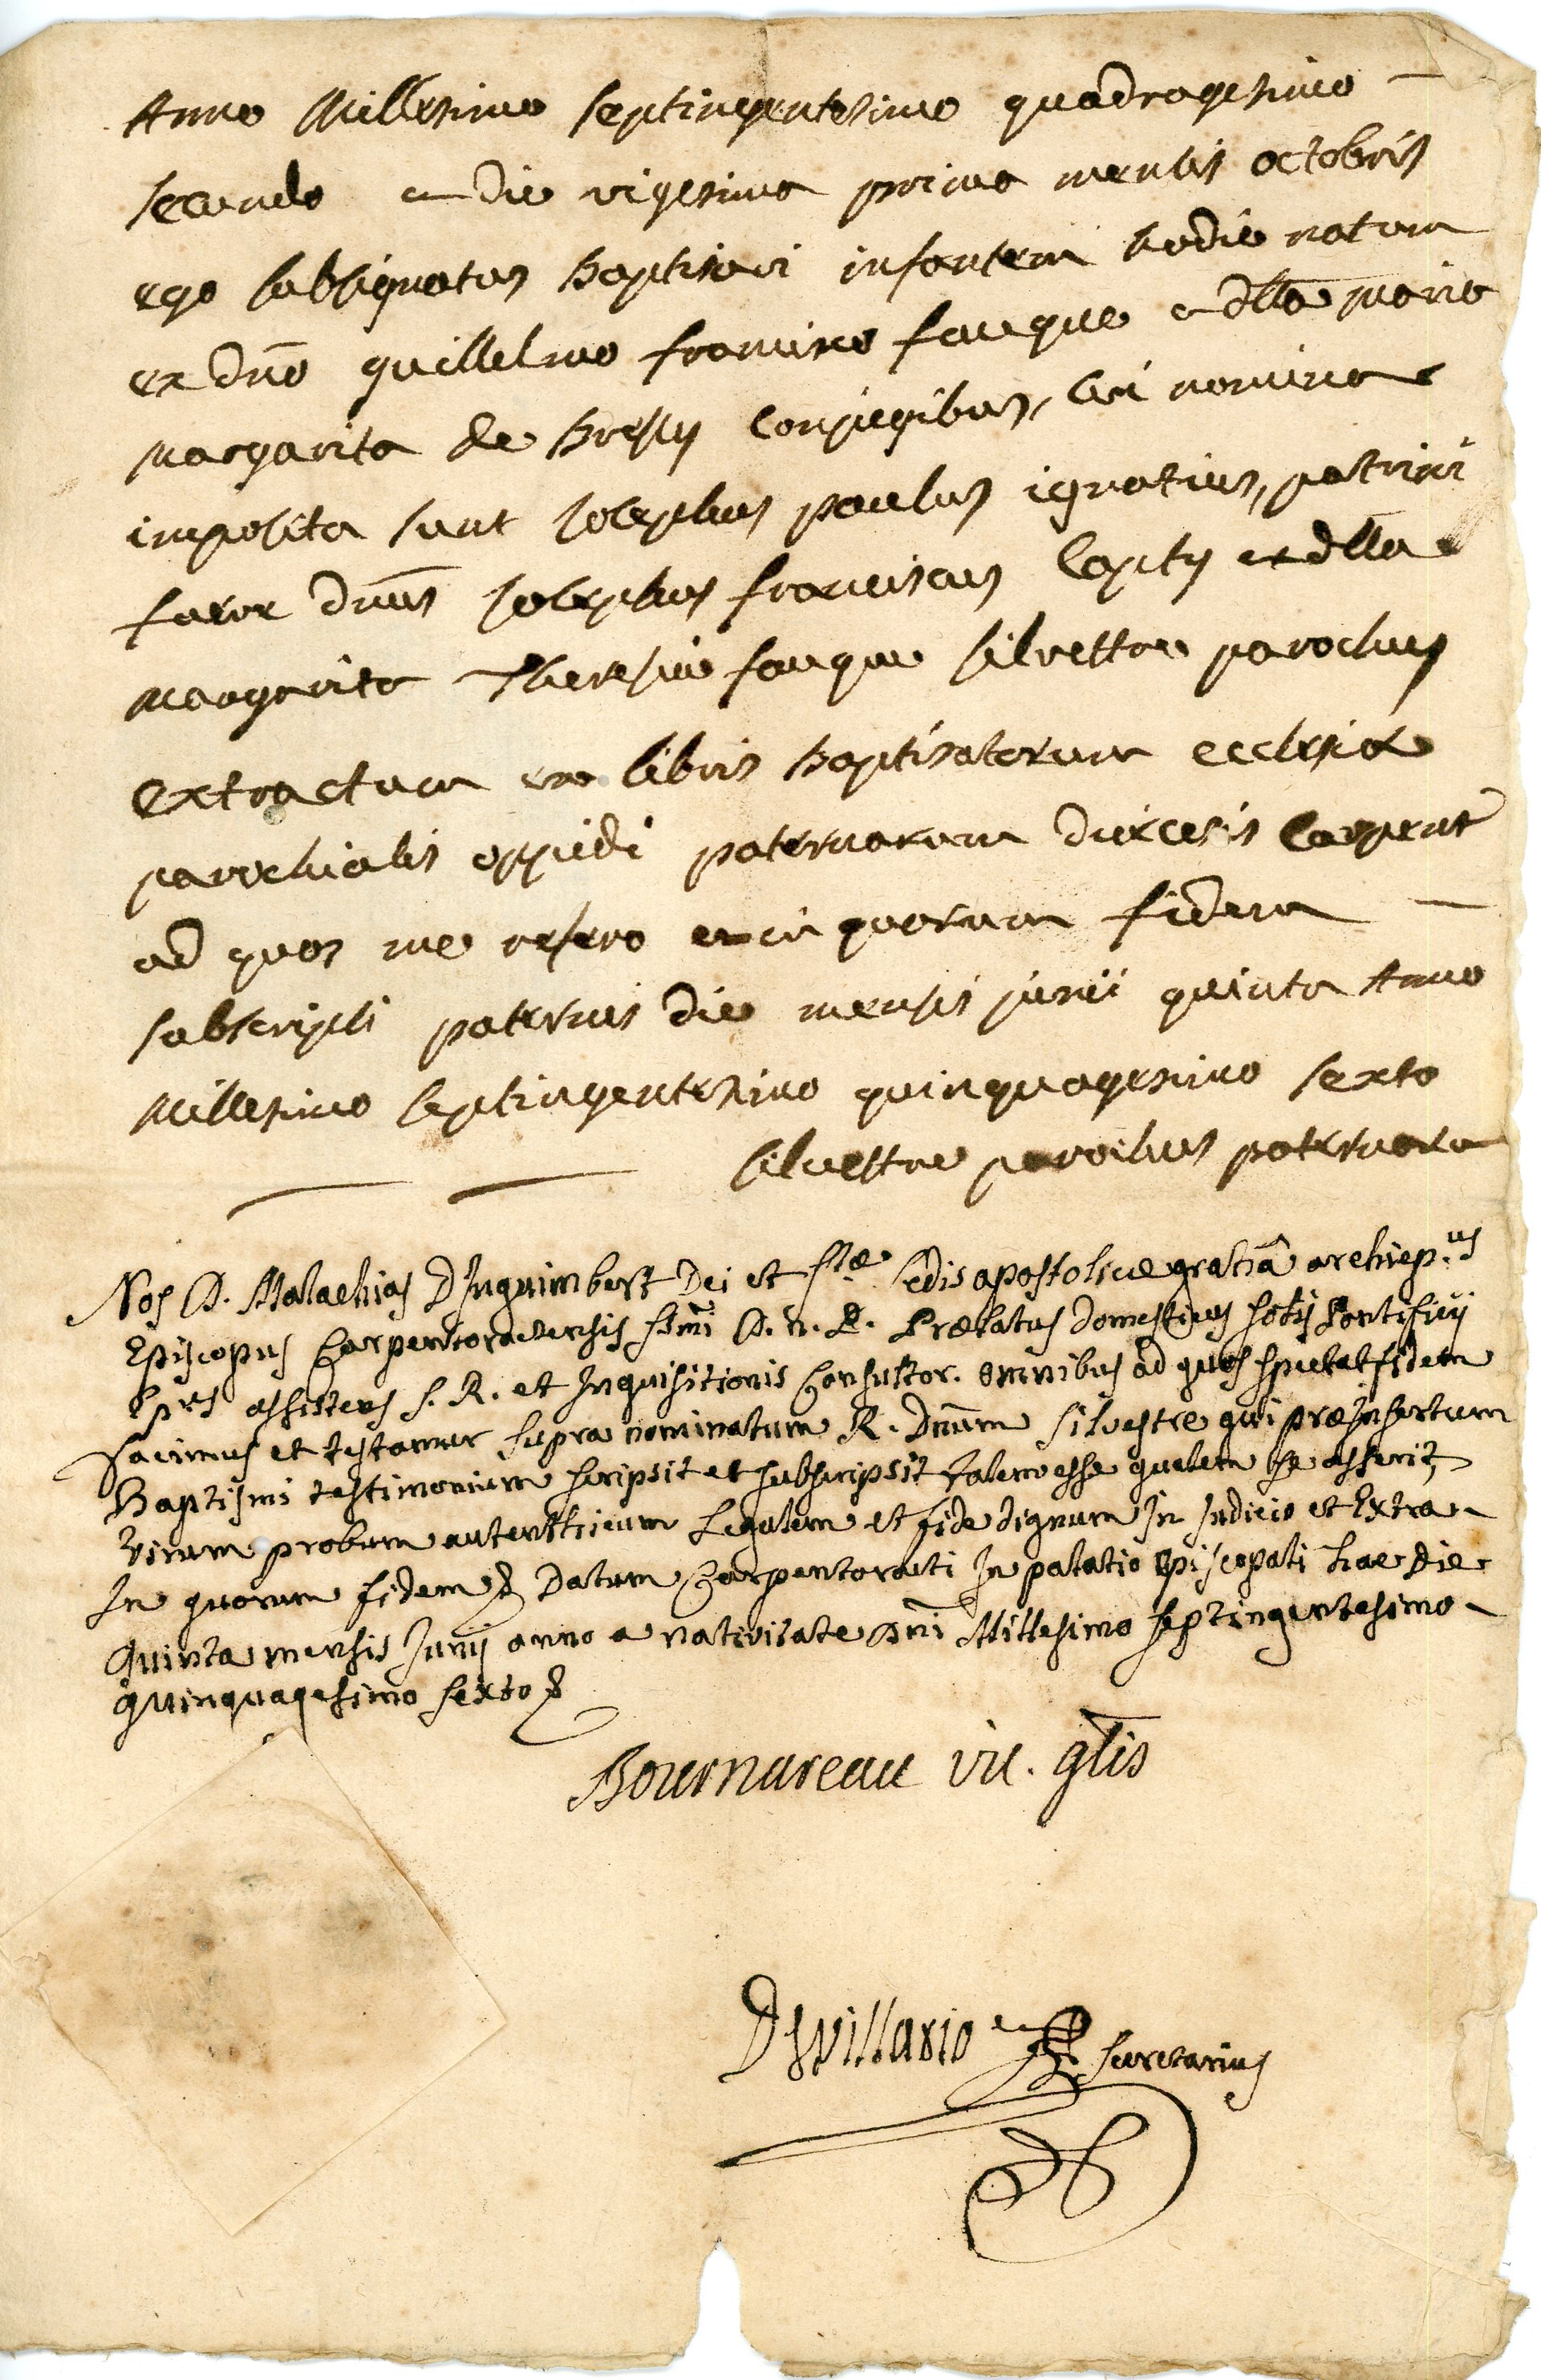 Anno Millesimo septingentesimo quadragesimo —
secundo et die vigesima prima mensis octobris
ego subsignatus baptisavi infantem hodie natum
ex dño guillelmo francisco fauque et dlla maria
margarita de Bressy conjugibus, cui nomina
imposita sunt josephus paulus ignatius, patrini
fuere dnus josephus franciscus Capty et dlla
margarita Theresia fauque silvestre parochus
extractum ex libris baptisatorum ecclesiæ
parochialis oppidi paternarum diœcesis Carpent
ad quos me refero et in quorum fidem —
subscripsi paternis die mensis junii quinta Anno
millesimo septingentesimo quinquagesimo sexto
silvestre parochus paternarum
Nos D. Malachias D'Inguimbert Dei et stæ sedis apostolicæ gratiâ archiep.us
Episcopus Carpentoractensis ssmi D. n. P. Prælatus domesticus solij Pontificij
Epus assistens S. R. et Inquisitionis Consultor. omnibus ad quos spectat fidem
facimus et testamur supra nominatum R. Dnum silvestre qui præinsertum
Baptismi testimonium scripsit et subscripsit talem esse qualem se asserit,
virum probum autentticum Legalem et fide dignum In Judicio et Extra
In quorum fidem Datum Carpentoracti In palatio episcopali hac die
quinta mensis Junij anno a nativitate Dni Millesimo septingentesimo
quinquagesimo sexto
Bournareau vic. glis
Devillario secretarius